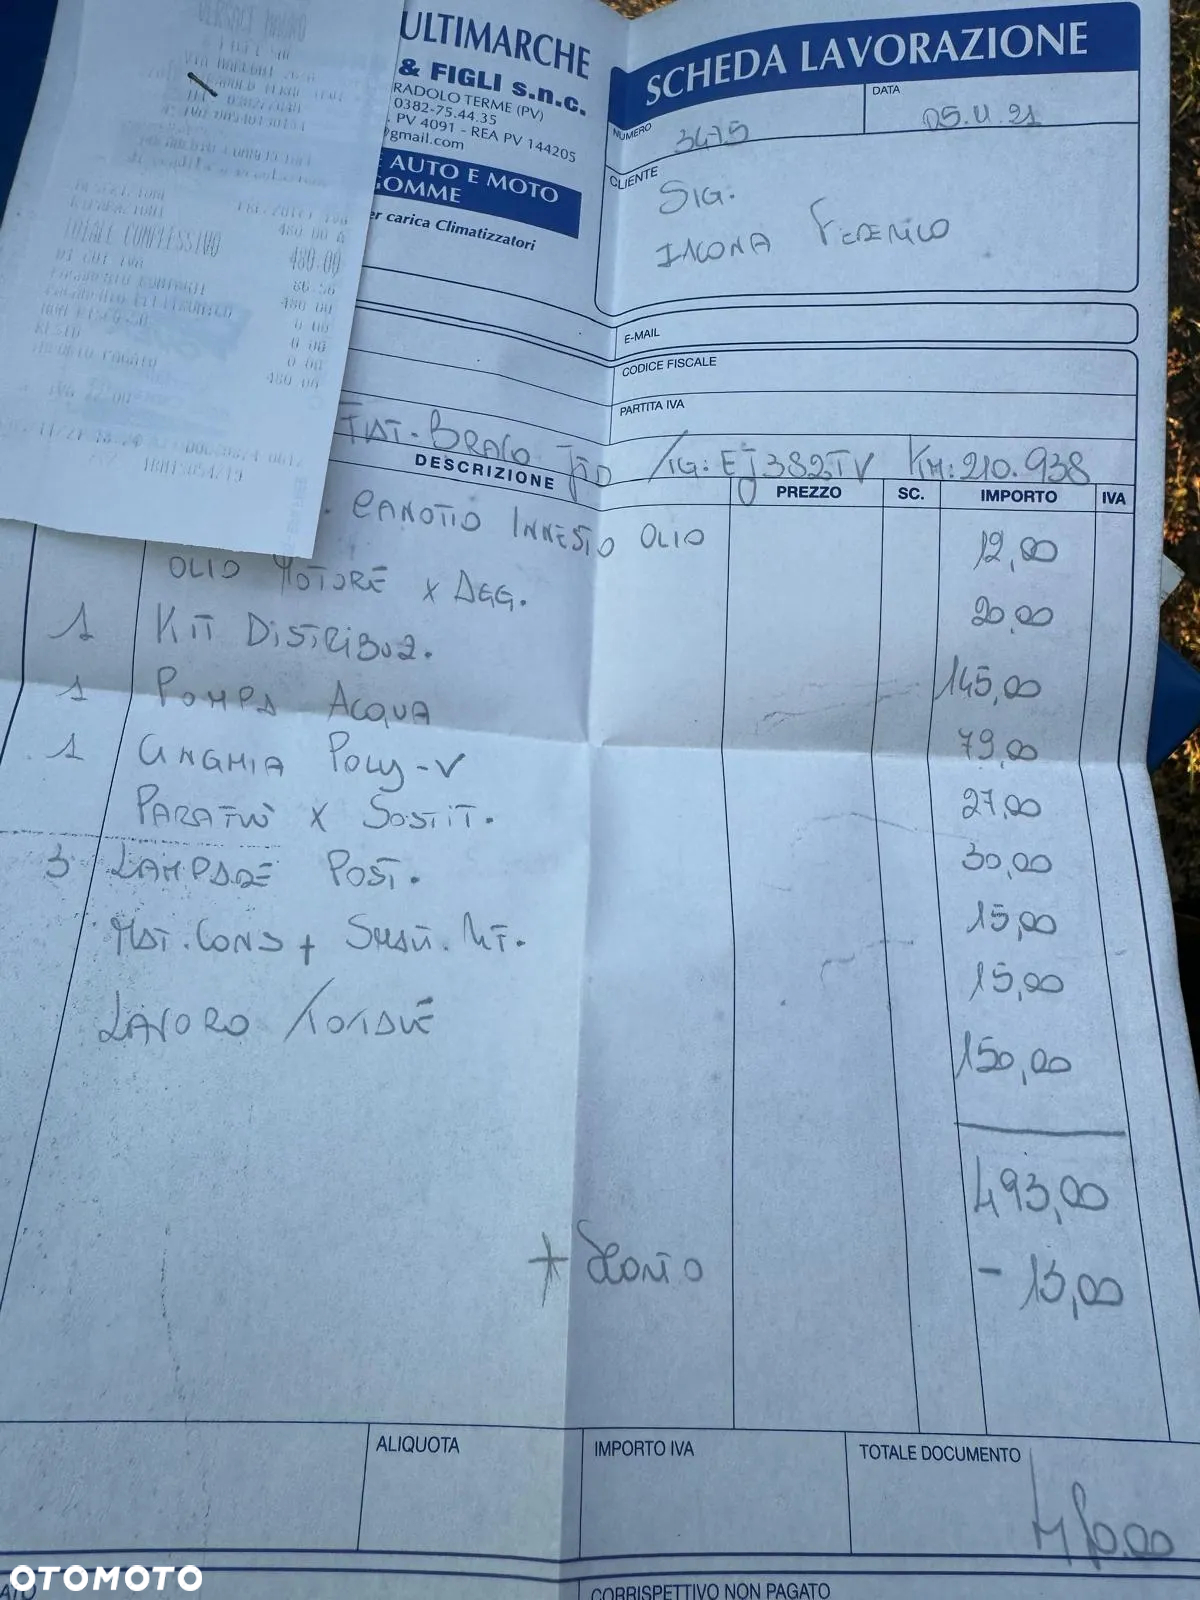 ULTIMARCHE
& FIGLI s.n.c.
RADOLO TERME (PV)
0382-75.44.35
PV 4091 - REA PV 144205
@gmail.com
AUTO E MOTO
GOMME
er carica Climatizzatori
SCHEDA LAVORAZIONE
NUMERO
3475
DATA
05.11.21
CLIENTE
SIG.
IACONA FEDERICO
E-MAIL
CODICE FISCALE
PARTITA IVA
FIAT-BRAVO TJD /TG: EJ382TV KM: 210.938
DESCRIZIONE PREZZO SC. IMPORTO IVA
INNESTO OLIO 12,00
OLIO MOTORE x AGG. 20,00
1 KIT DISTRIBUZ. 145,00
1 POMPA ACQUA 79,00
1 CINGHIA POLY-V 27,00
x SOSTIT. 30,00
3 LAMPADE POST. 15,00
MAT. CONS + SMALT. 15,00
LAVORO 150,00
493,00
+ SCONTO - 13,00
ALIQUOTA
IMPORTO IVA
TOTALE DOCUMENTO
480,00
CORRISPETTIVO NON PAGATO
TOTALE COMPLESSIVO 480.00
DI CUI IVA 86.56
PAGAMENTO CONTANTI 480.00
PAGAMENTO ELETTRONICO 0.00
NON RISCOSSO 0.00
RESTO 0.00
IMPORTO PAGATO 480.00
OTOMOTO